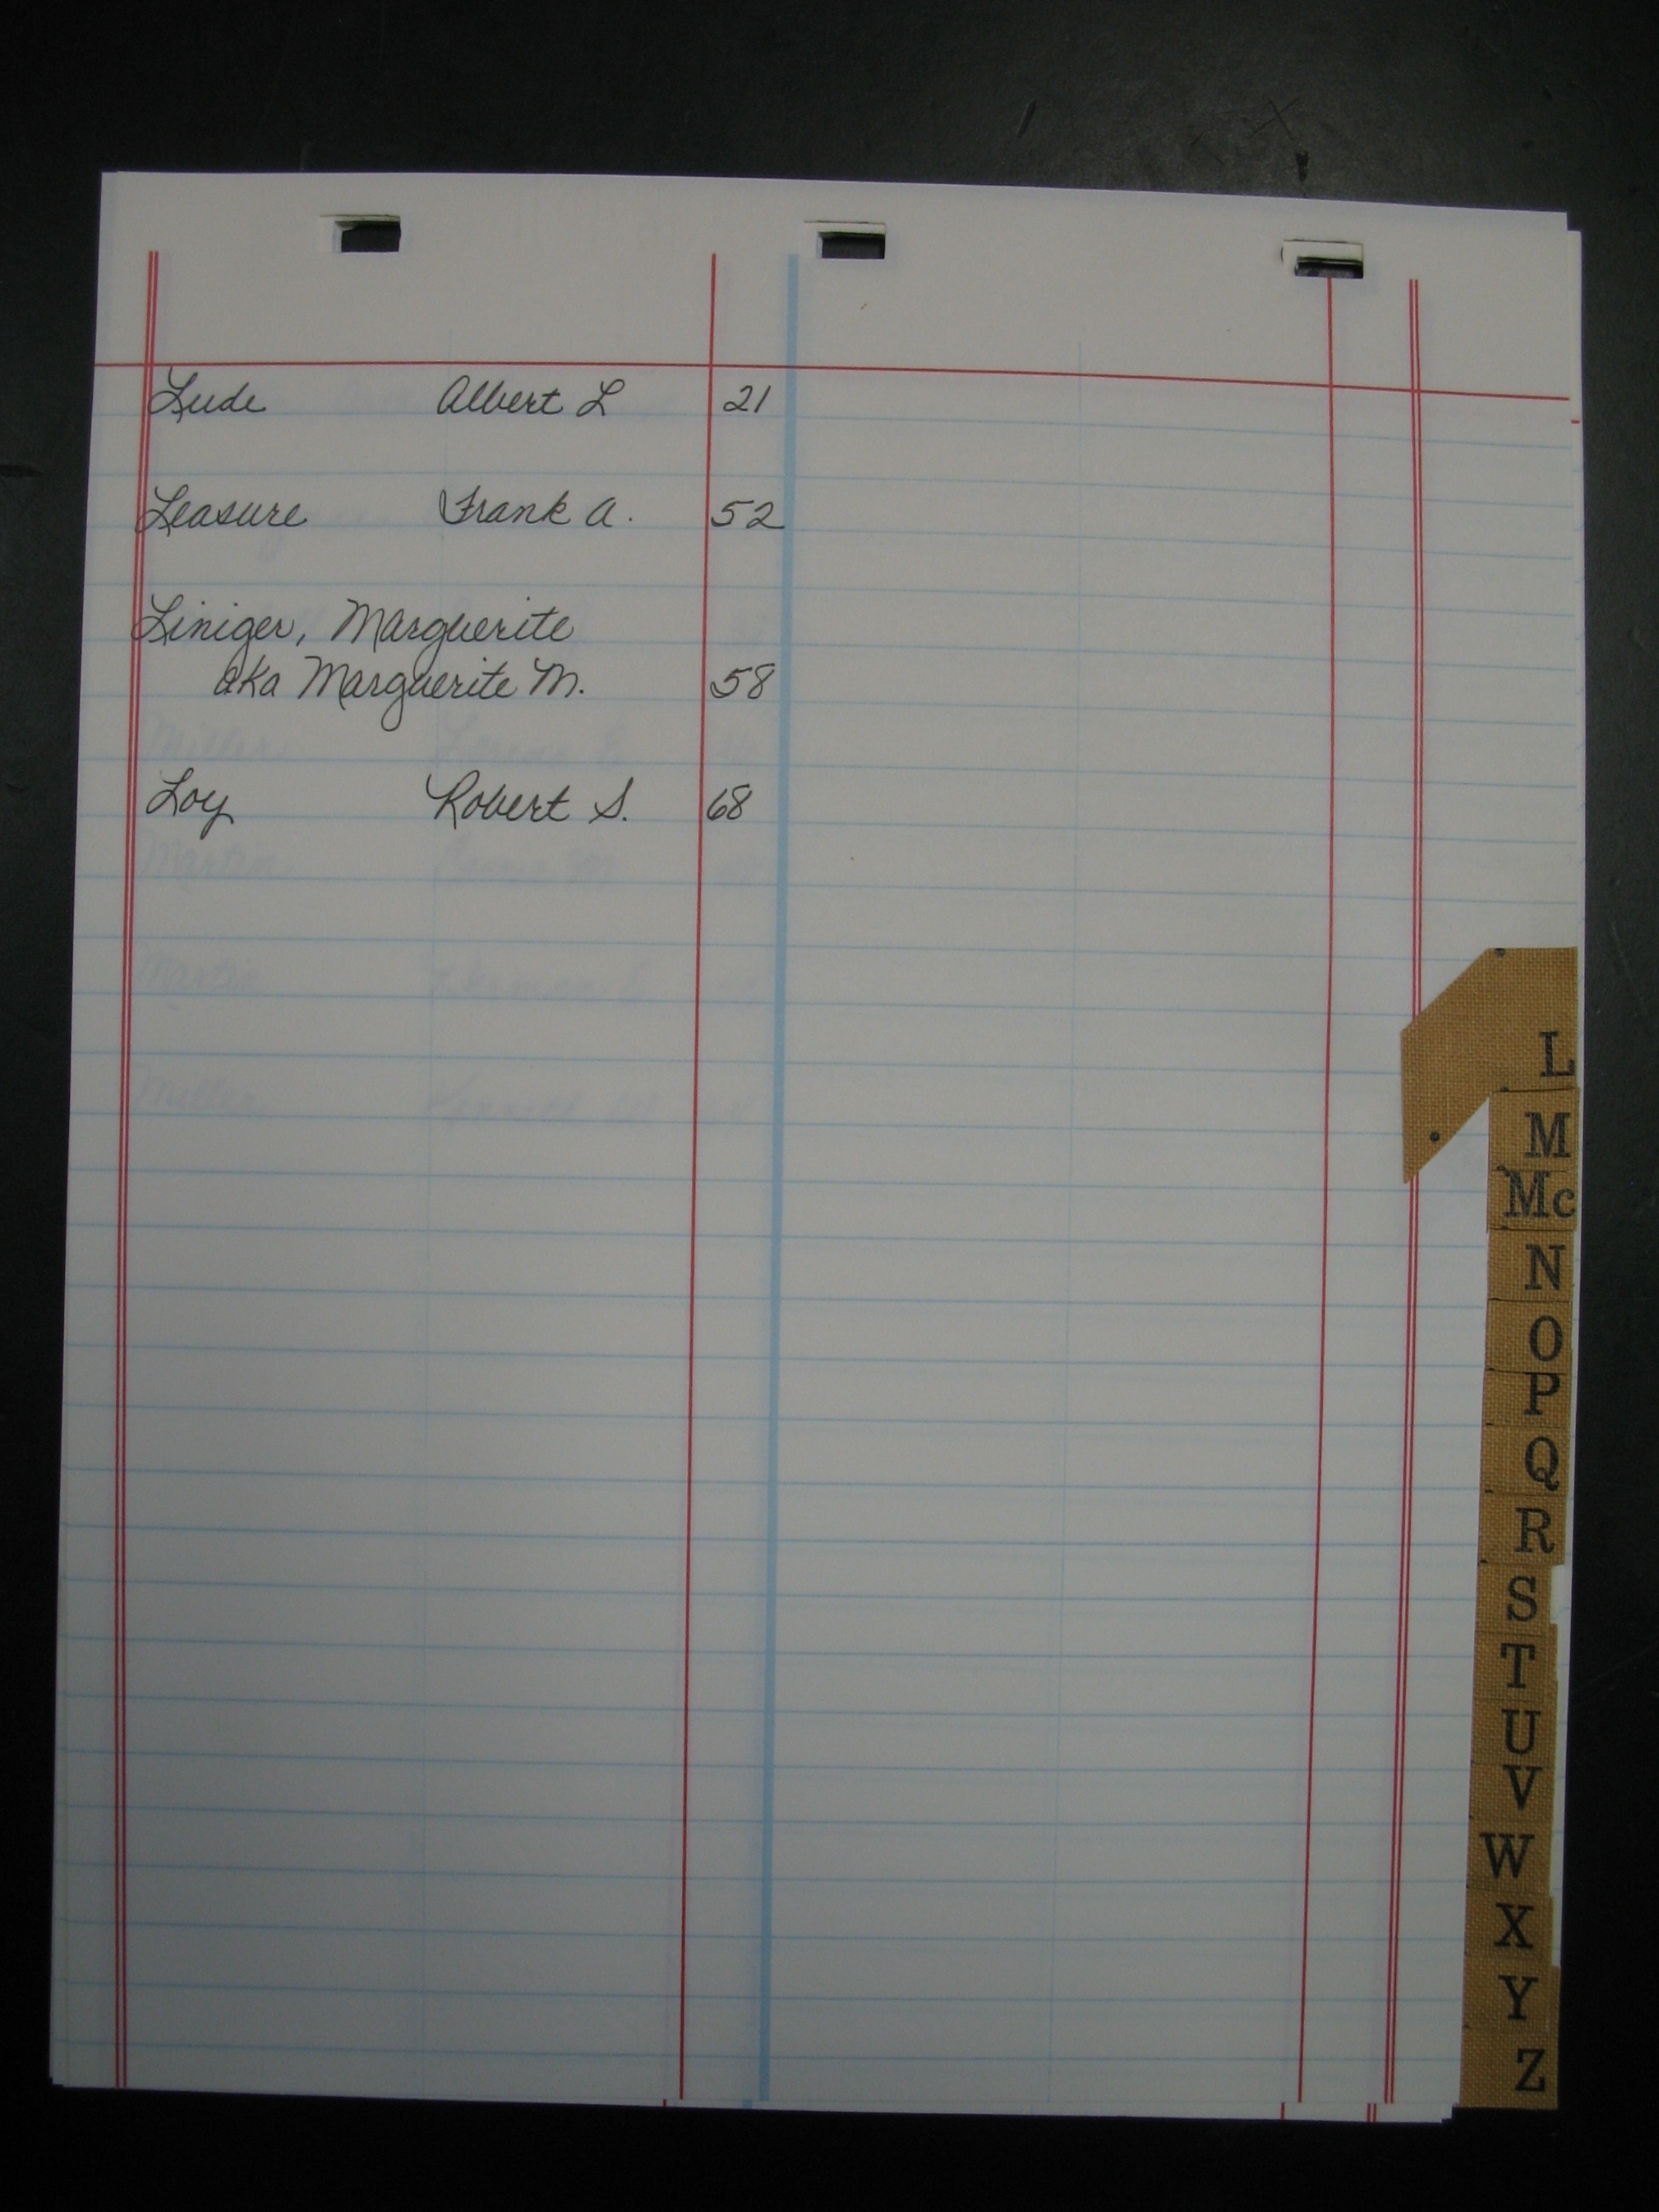 Lude Albert L 21
Leasure Frank A. 52
Liniger, Marguerite
aka Marguerite M. 58
Loy Robert S. 68
L
M
Mc
N
O
P
Q
R
S
T
U
V
W
X
Y
Z